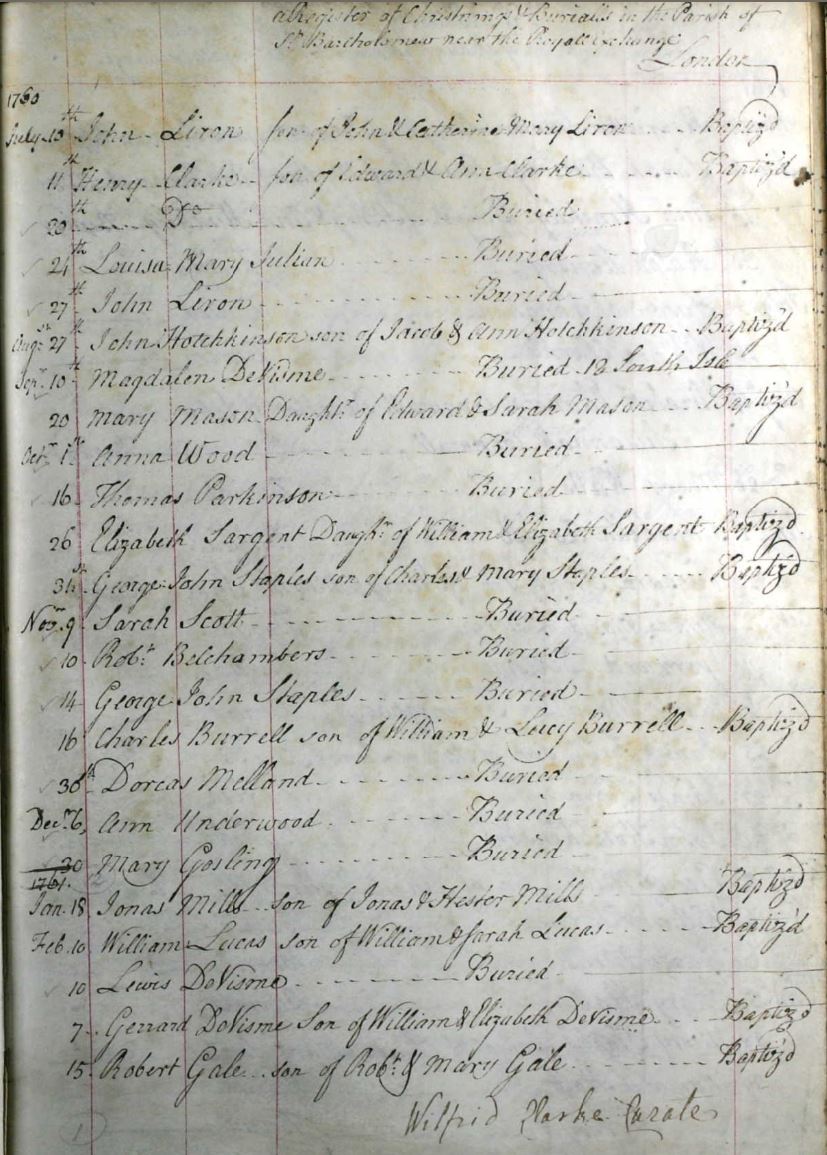 a Register of Christnings & Burialls in the Parish of
St. Bartholomew near the Royall Exchange
London
1760
July 10th John Liron son of John & Catherine Mary Liron Baptiz'd
11th Henry Clarke son of Edward & Ann Clarke Baptiz'd
20th Do Buried
24th Louisa Mary Julian Buried
27th John Liron Buried
Augst 27th John Hotchkinson son of Jacob & Ann Hotchkinson Baptiz'd
Sepr 10th Magdalen DeVisme Buried 12 South Isle
20 Mary Mason Daughtr of Edward & Sarah Mason Baptiz'd
Octr 1st Anna Wood Buried
16 Thomas Parkinson Buried
26 Elizabeth Sargent Daughtr of William & Elizabeth Sargent Baptiz'd
31st George John Staples son of Charles & Mary Staples Baptiz'd
Novr 9 Sarah Scott Buried
10 Robt Belchambers Buried
14 George John Staples Buried
16 Charles Burrell son of William & Lucy Burrell Baptiz'd
30th Dorcas Melland Buried
Decr 6 Ann Underwood Buried
30 Mary Gosling Buried
1761
Jan. 18 Jonas Mills son of Jonas & Hester Mills Baptiz'd
Feb. 10 William Lucas son of William & Sarah Lucas Baptiz'd
10 Lewis DeVisme Buried
7 Gerrard DeVisme Son of William & Elizabeth DeVisme Baptiz'd
15 Robert Gale son of Robt & Mary Gale Baptiz'd
Wilfrid Clarke Curate
1